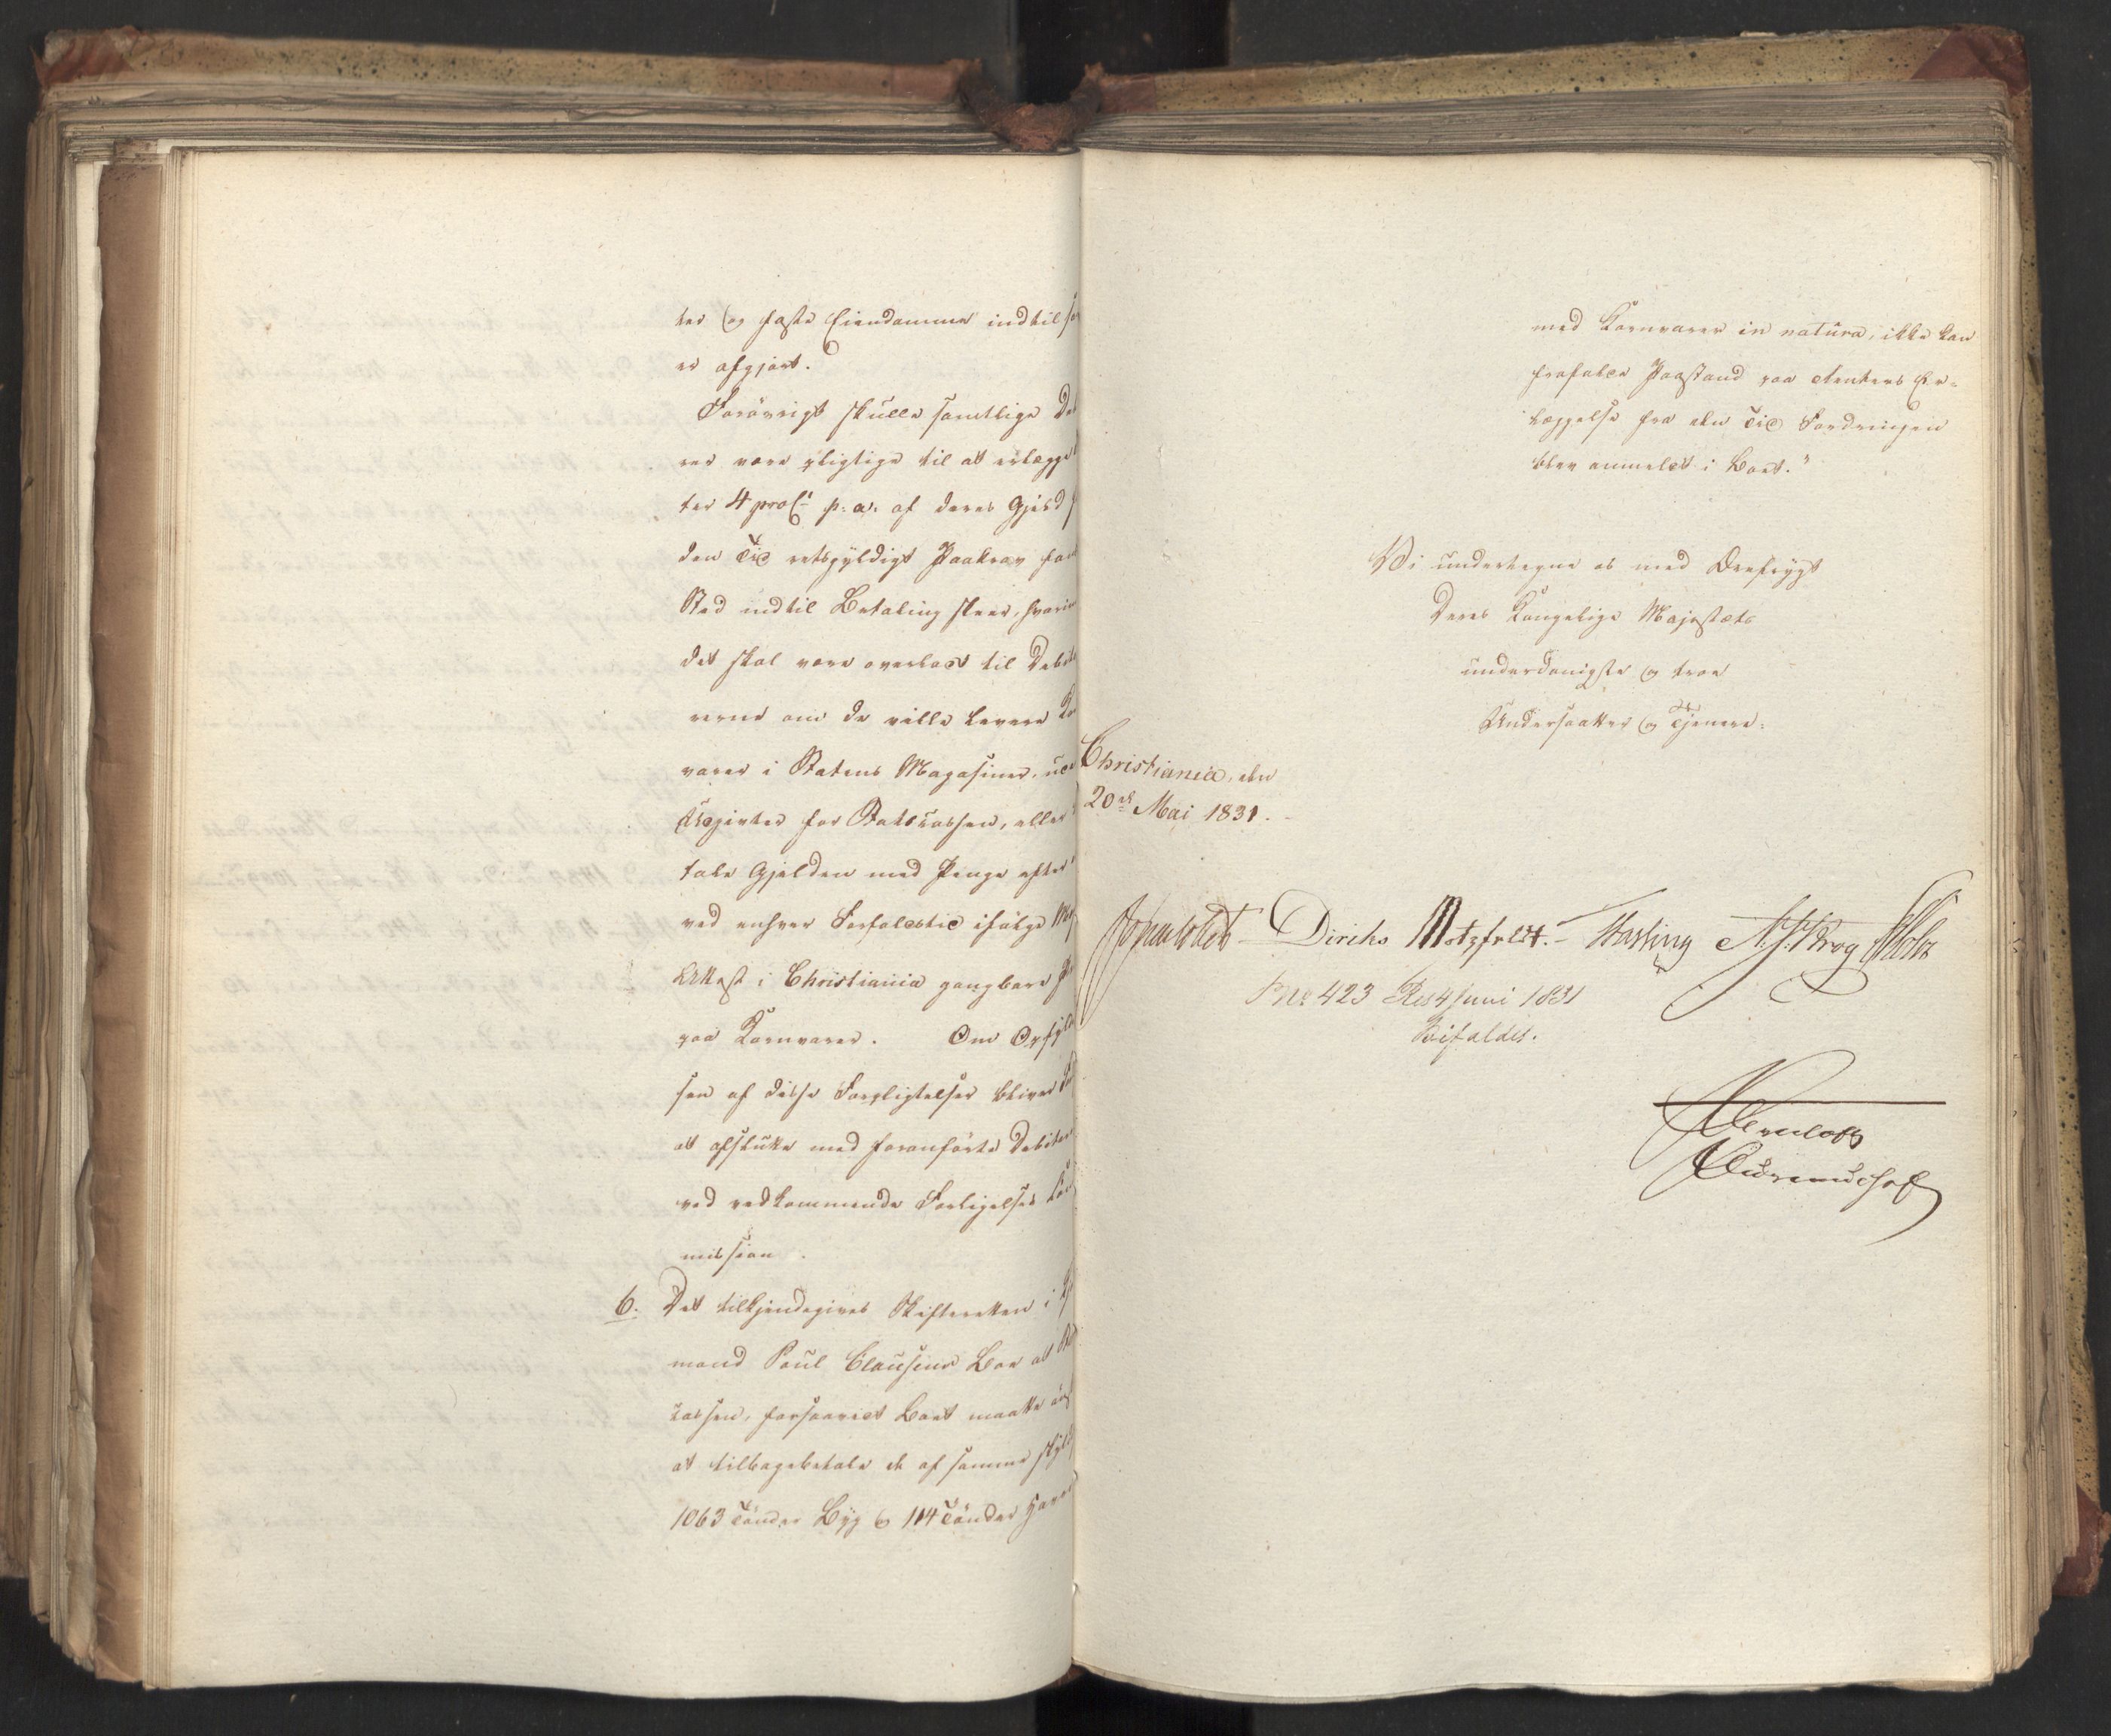 ter og faste Eiendomme indtil
er afgjort.
Forövrigt skulle samtlige
rer være pligtige til at erlægge
ter 4 proCt p: a: af deres Gjeld
den Tid retsgyldigt Paakrav
Sted indtil Betaling skeer, hvorim
det skal være overladt til Debito
rerne om de ville levere
varer i Statens Magasiner,
Udgivter for Statscassen, eller
tale Gjelden med Penge efter
ved enhver Forfaldstid ifölge
Attest i Christiania gangbare
paa Kornvarer. Om Opfyld
sen af disse Forpligtelser bliver
at afslutte med foranförte Debitorer
ved vedkommende Forligelses
mission.
6. Det tilkjendegives Skifteretten i
mand Poul Clausens Boe at
cassen, forsaavidt Boet maatte
at tilbagebetale de af samme
1063 Tönder Byg og 114 Tönder Havre
med Kornvarer in natura, ikke kan
frafalde Paastand paa Renters Er-
læggelse fra den Tid Fordringen
blev anmeldt i Boet."
Vi undertegne os med Ærefrygt
Deres Kongelige Majestæts
underdanigste og troe
Undersaatter og Tjenere.
Christiania, den
20de Mai 1831.
Diriks Motzfeldt. Hasting Krog
No 423 Res 4 Juni 1831
Bifaldes.